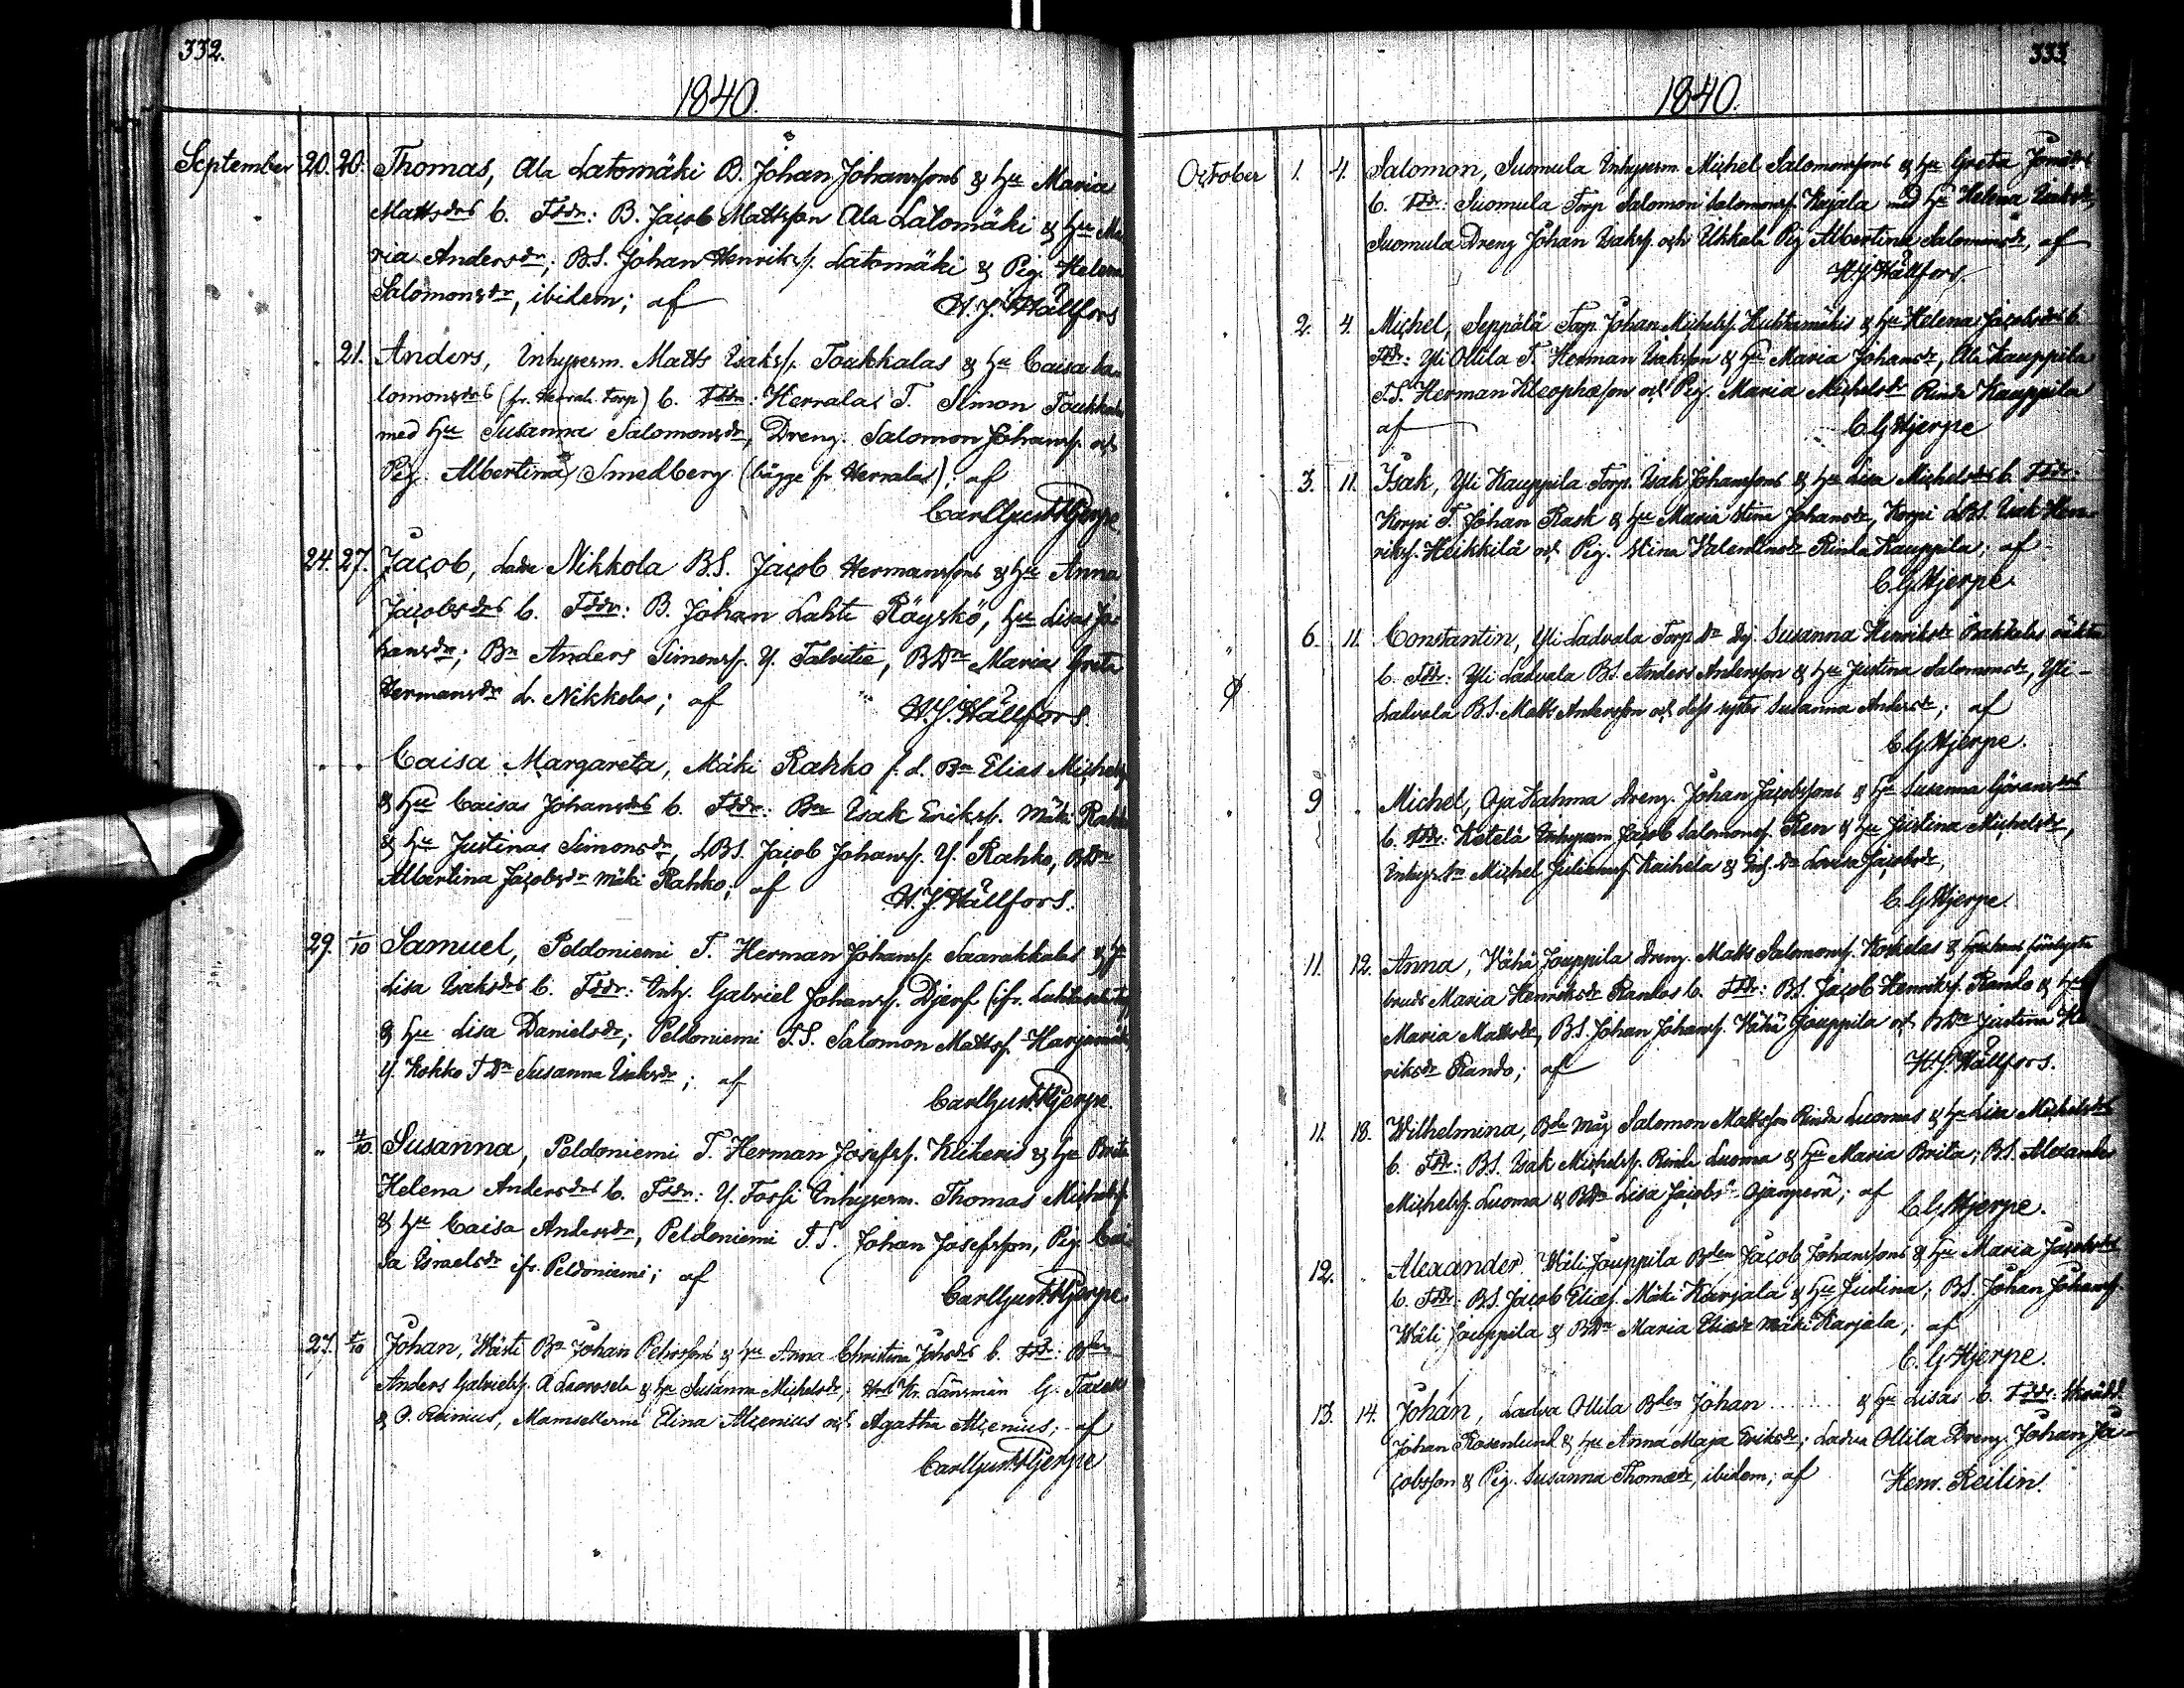 332.
1840.
September 20. 20. Thomas, Ala Latomäki B. Johan Johanssons & hu Maria
Mattsdrs b. Fddr: B. Jacob Mattsson Ala Latomäki & hu Ma
ria Andersdr; B.S. Johan Henrikss. Latomäki & Pig. Helena
Salomonsdr, ibidem; af H. J. Hällfors
21. Anders, Inhysesm. Matts Isakss. Toukkalas & hu Caisa Sa
lomonsdrs (fr. Herrala Torp) b. Fddr: Herralas T. Simon Toukkala
med hu Susanna Salomonsdr, Dreng. Salomon Johanss. och
Pig. Albertina Smedberg (bägge fr Herralas); af
Carl Gust. Hjerpe
24. 27. Jacob, Lada Nikkola B.S. Jacob Hermanssons & hu Anna
Jacobsdrs b. Fddr: B. Johan Lahti Röyskö, hu Lisa Jo-
hansdr; Bn Anders Simonss. Y. Talvitie, BDr Maria Greta
Hermansdr L. Nikkola; af H. J. Hällfors.
" " Caisa Margareta, Mäki Rahko f. d. Bn Elias Michels
& hu Caisas Johansdrs b. Fddr: Bn Isak Erikss. Mäki Rahko
& hu Justinas Simonsdr, LBS. Jacob Johanss. Y. Rahko, BDr
Albertina Jacobsdr Mäki Rahko; af H. J. Hällfors.
29. 1/10 Samuel, Peldoniemi T. Herman Johanss. Saarakkalas & hu
Lisa Isaksdrs b. Fddr: Inh. Gabriel Johanss. Djerf
& hu Lisa Danielsdr; Peldoniemi T.S. Salomon Mattss. Harjamäki
Y. Kokko TDr Susanna Isaksdr; af
Carl Gust. Hjerpe.
" 4/10 Susanna, Peldoniemi T. Herman Josefss. Klikeris & hu Brita
Helena Andersdrs b. Fddr: Y. Torssi Inhysesm. Thomas Michelss.
& hu Caisa Andersdr, Peldoniemi T.S. Johan Josefsson, Pig. Cai-
sa Israelsdr ifr. Peldoniemi; af
Carl Gust. Hjerpe.
27. /10 Johan, Wästi Bn Johan Peterssons & hu Anna Christina Johsdrs b. Fddr: Bden
Anders Gabrielss. A Laurosela & hu Susanna Michelsdr; Kr. Länsman G.
& O. Reinius, Mamsellerne Elina Alcenius och Agatha Alcenius; af
Carl Gust. Hjerpe
333
1840.
October 1. 4. Salomon, Suomula Inhysesm. Michel Salomonssons & hu Greta
b. Fddr: Suomula Torp Salomon Salomonss. Kujala med hu Helena Isaksdr,
Suomula Dreng Johan Isakss. och Ukkola Pig Albertina Salomonsdr, af
H. J. Hällfors.
2. 4. Michel, Seppälä Torp. Johan Michelss. Huhtamäkis & hu Helena Jacobsdrs b.
Fddr: Yli Ollila T. Herman Isaksson & hu Maria Johansdr, Ala Kauppila
T.S. Herman Kleophasson och Pig. Maria Michelsdr Rinda Kauppila
af C G Hjerpe
3. 11. Isak, Yli Kauppila Torp. Isak Johanssons & hu Lisa Michelsdrs b. Fddr:
Korpi T. Johan Rask & hu Maria Stina Johansdr, Korpi LBS. Isak Hen-
rikss. Heikkilä och Pig. Stina Valentinsdr Rinta Kauppila; af
C. G Hjerpe.
6. 11. Constantin, Yli Ladvala Torp Dr Dej. Susanna Henriksdr
b. Fddr: Yli Ladvala BS. Anders Andersson & hu Justina Salomonsdr, Yli-
Ladvala B.S. Matts Andersson och dess syster Susanna Andersdr; af
C G Hjerpe.
9 " Michel, Oja Kahma Dreng. Johan Jacobssons & hu Susanna Göransdrs
b. Fddr: Ketelä Inhysesm Jacob Salomonss. Ren & hu Justina Michelsdr,
Michel Kaihela & Lovisa Jacobsdr,
C. G Hjerpe
11. 12. Anna, Vähä Jouppila Dreng. Matts Salomonss. Koskelas &
bruds Maria Henriksdr Randos b. Fddr: BS. Jacob Henrikss. Rando & hu
Maria Mattsdr, B.S. Johan Johanss. Vähä Jouppila och BDr Justina He
riksdr Rando; af H. J. Hällfors.
11. 18. Wilhelmina, Bde Måg Salomon Mattsson Rinda Luomas & hu Lisa Michelsdrs
b. Fddr: BS. Isak Michelss. Rinda Luoma & hu Maria Brita; BS. Alexander
Michelss. Luoma & BDr Lisa Jacobsdr Ojanperä; af C G Hjerpe.
12. " Alexander, Wäli Jouppila Bden Jacob Johanssons & hu Maria Jacobsdrs
b. Fddr: B.S. Jacob Eliass. Mäki Karjala & hu Justina; BS. Johan Johanss.
Wäli Jouppila & BDr Maria Eliasdr Mäki Karjala; af
C. G Hjerpe.
13. 14. Johan, Ladva Ollila Bden Johan ...... & hu Lisas b. Fddr: Skrädd.
Johan Rosenlund & hu Anna Maja Eriksdr; Ladva Ollila Dreng. Johan Ja-
cobsson & Pig. Susanna Thomasdr, ibidem; af Henr. Reilin.